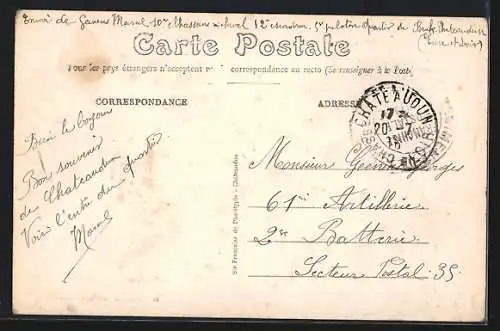 Envoi de Marcel 10me Chasseurs à cheval 12e escadron 5e peloton Quartier de
(Eure et Loir)
Carte Postale
Tous les pays étrangers n'acceptent correspondance au recto (Se renseigner à la Poste)
CORRESPONDANCE
ADRESSE
CHATEAUDUN
Bien le bonjour
Bon souvenir
de Chateaudun
Voici l'entrée du quartier
Marcel
Monsieur Georges
61me Artillerie
2me Batterie
Secteur Postal 35
Sté Française de Phototypie - Châteaudun